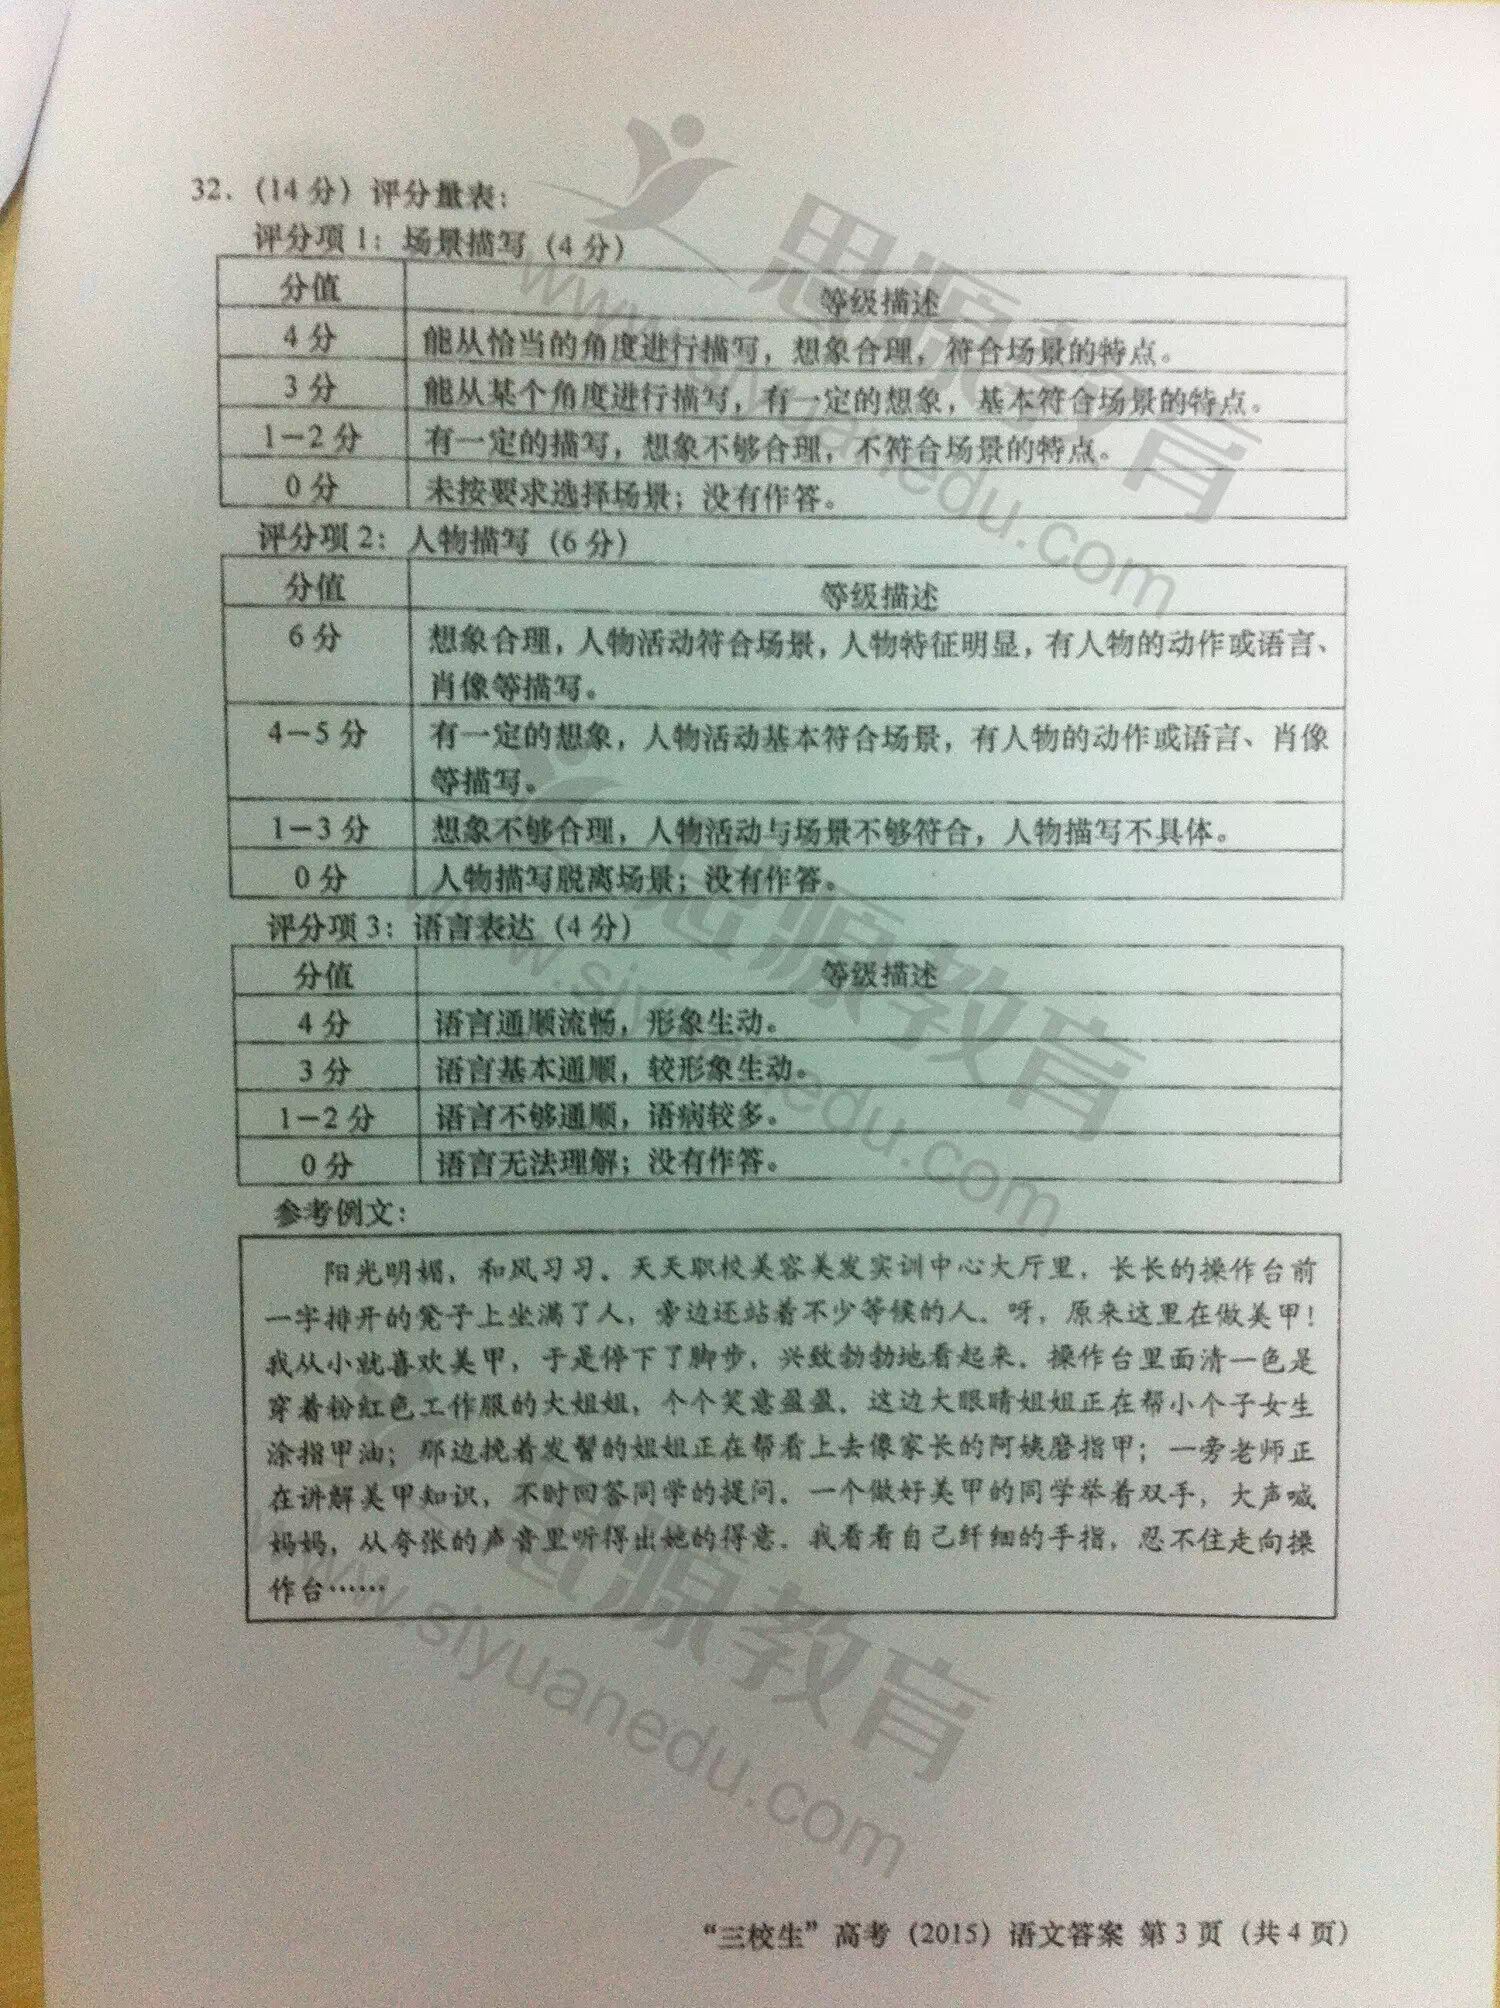 32.（14分）评分量表：
评分项1：场景描写（4分）
分值 等级描述
4分 能从恰当的角度进行描写，想象合理，符合场景的特点。
3分 能从某个角度进行描写，有一定的想象，基本符合场景的特点。
1－2分 有一定的描写，想象不够合理，不符合场景的特点。
0分 未按要求选择场景；没有作答。
评分项2：人物描写（6分）
分值 等级描述
6分 想象合理，人物活动符合场景，人物特征明显，有人物的动作或语言、
肖像等描写。
4－5分 有一定的想象，人物活动基本符合场景，有人物的动作或语言、肖像
等描写。
1－3分 想象不够合理，人物活动与场景不够符合，人物描写不具体。
0分 人物描写脱离场景；没有作答。
评分项3：语言表达（4分）
分值 等级描述
4分 语言通顺流畅，形象生动。
3分 语言基本通顺，较形象生动。
1－2分 语言不够通顺，语病较多。
0分 语言无法理解；没有作答。
参考例文：
阳光明媚，和风习习。天天职校美容美发实训中心大厅里，长长的操作台前
一字排开的凳子上坐满了人，旁边还站着不少等候的人。呀，原来这里在做美甲！
我从小就喜欢美甲，于是停下了脚步，兴致勃勃地看起来。操作台里面清一色是
穿着粉红色工作服的大姐姐，个个笑意盈盈。这边大眼睛姐姐正在帮小个子女生
涂指甲油；那边挽着发髻的姐姐正在帮看上去像家长的阿姨磨指甲；一旁老师正
在讲解美甲知识，不时回答同学的提问。一个做好美甲的同学举着双手，大声喊
妈妈，从夸张的声音里听得出她的得意。我看看自己纤细的手指，忍不住走向操
作台……
“三校生”高考（2015）语文答案 第3页（共4页）
思源教育
www.siyuanedu.com
思源教育
www.siyuanedu.com
思源教育
www.siyuanedu.com